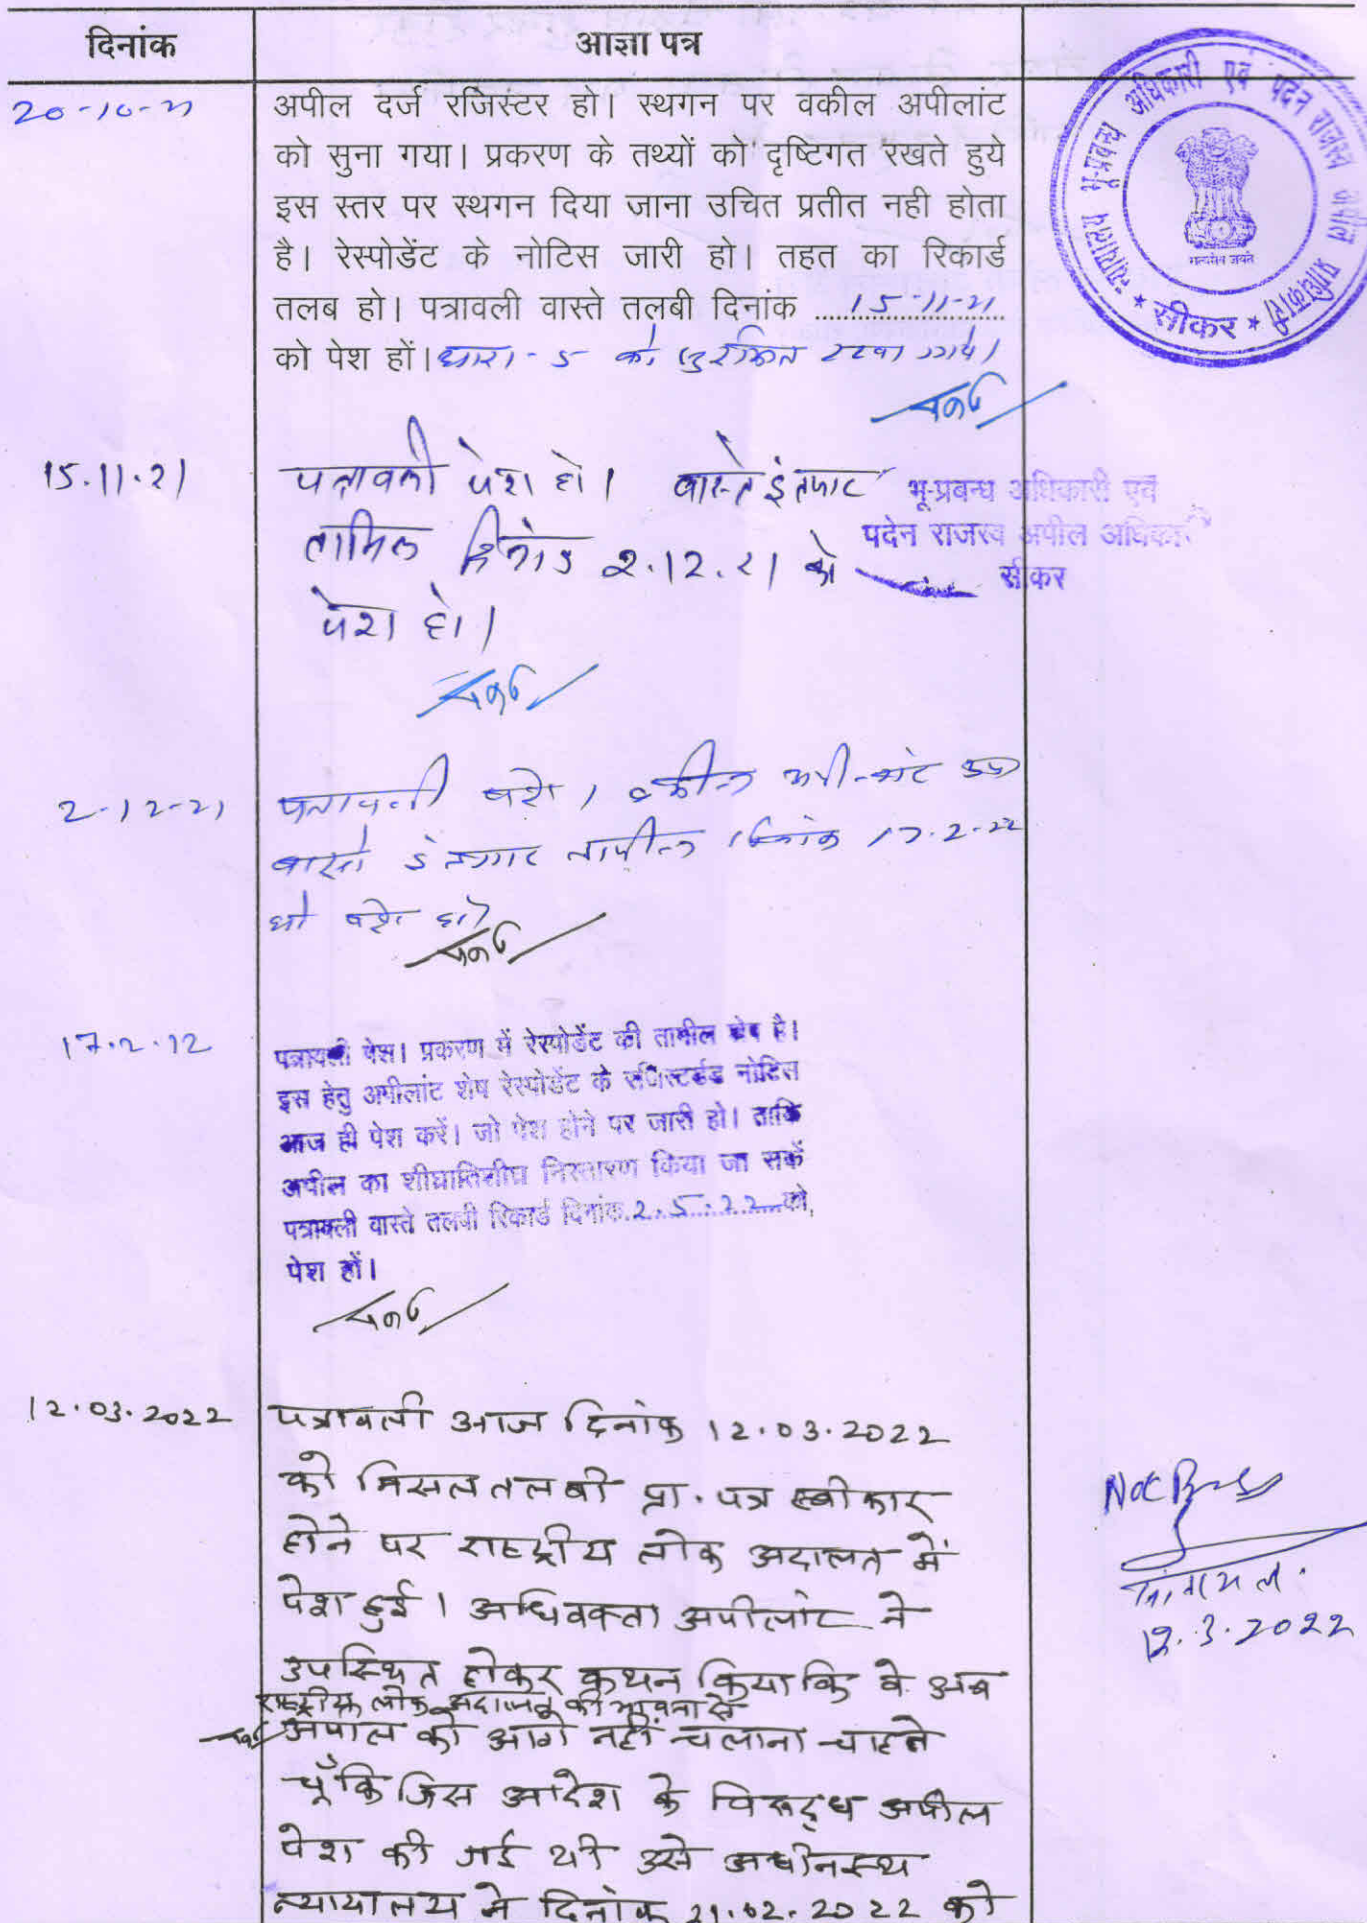 दिनांक
आज्ञा पत्र
न्यायालय भू-प्रबन्ध अधिकारी एवं पदेन राजस्व अपील प्राधिकारी
सत्यमेव जयते
* सीकर *
20-10-21
अपील दर्ज रजिस्टर हो। स्थगन पर वकील अपीलांट
को सुना गया। प्रकरण के तथ्यों को दृष्टिगत रखते हुये
इस स्तर पर स्थगन दिया जाना उचित प्रतीत नही होता
है। रेस्पोडेंट के नोटिस जारी हो। तहत का रिकार्ड
तलब हो। पत्रावली वास्ते तलबी दिनांक 15-11-21
को पेश हों। धारा-5 को सुरक्षित रखा जाये।
15.11.21
पत्रावली पेश हो। वास्ते इंतजार
तामिल दिनांक 2.12.21 को
पेश हो।
भू-प्रबन्ध अधिकारी एवं
पदेन राजस्व अपील अधिकारी
सीकर
2-12-21
पत्रावली पेश। वकील अपीलांट उप
वास्ते इंतजार तामील दिनांक 17.2.22
को पेश हो
17.2.12
पत्रावली पेश। प्रकरण में रेस्पोडेंट की तामील शेष है।
इस हेतु अपीलांट शेष रेस्पोडेंट के रजिस्टर्डड नोटिस
आज ही पेश करें। जो पेश होने पर जारी हो। ताकि
अपील का शीघ्रातिशीघ्र निस्तारण किया जा सकें
पत्रावली वास्ते तलबी रिकार्ड दिनांक 2.5.22 को,
पेश हों।
12.03.2022
पत्रावली आज दिनांक 12.03.2022
को मिसल तलबी प्रा. पत्र स्वीकार
होने पर राष्ट्रीय लोक अदालत में
पेश हुई। अधिवक्ता अपीलांट ने
उपस्थित होकर कथन किया कि वे अब
राष्ट्रीय लोक अदालत की भावना से
अपील को आगे नहीं चलाना चाहते
चूँकि जिस आदेश के विरूद्ध अपील
पेश की गई थी उसे अधीनस्थ
न्यायालय ने दिनांक 21.02.2022 को
12.3.2022